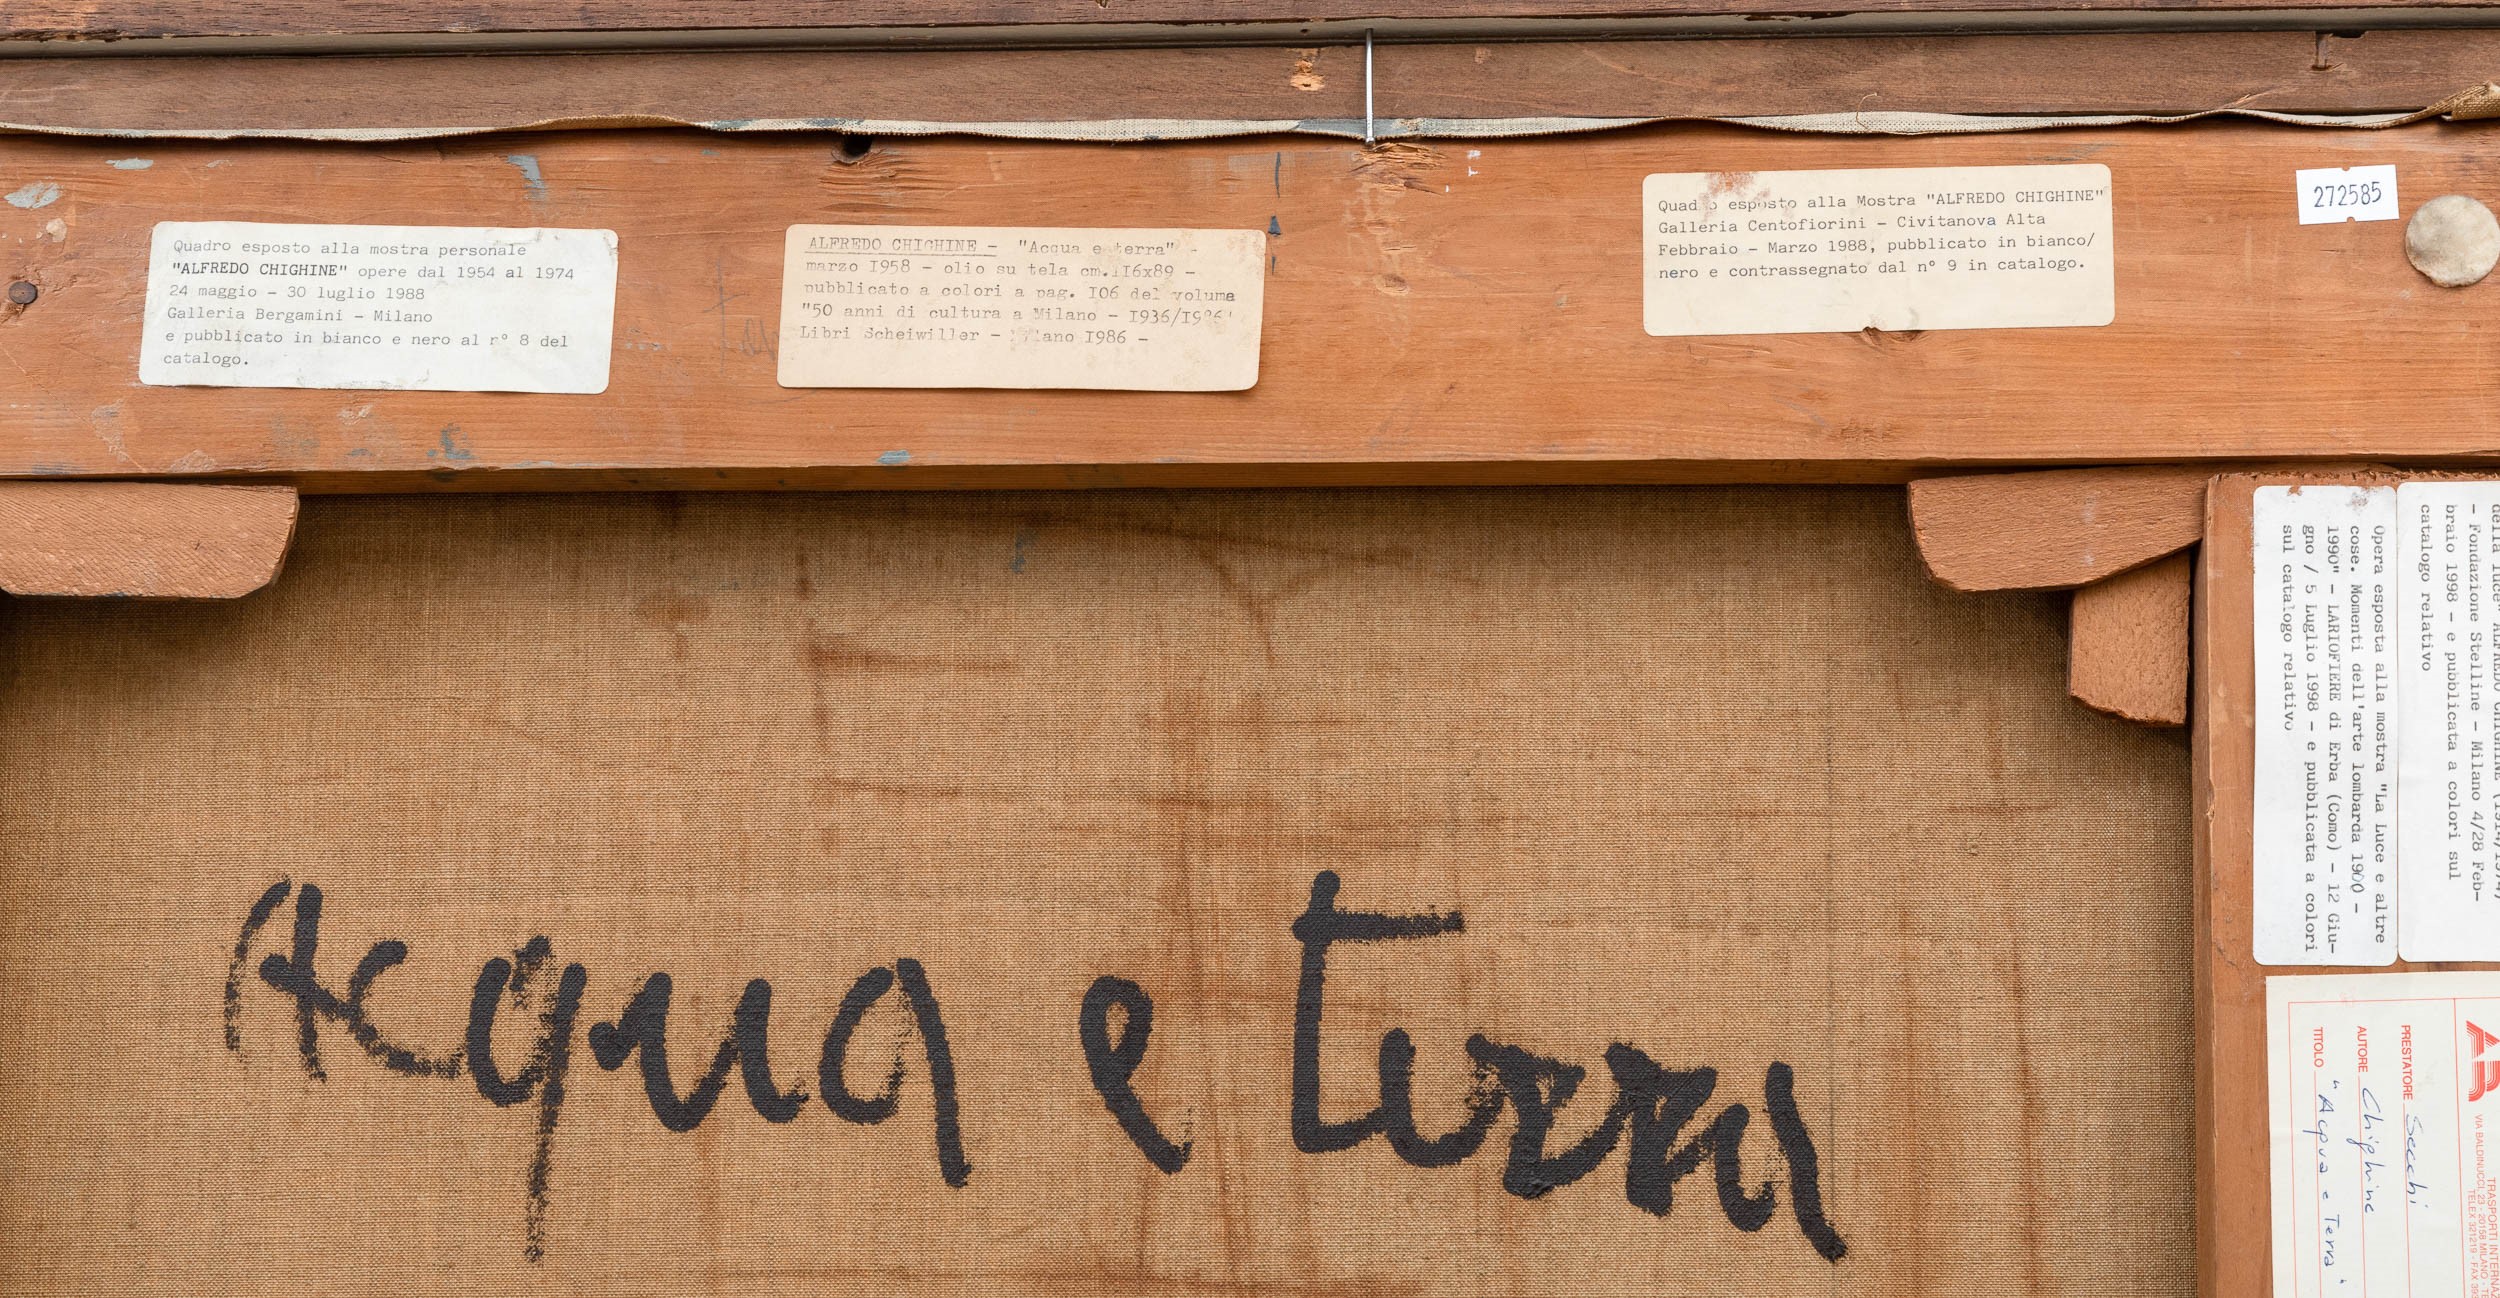 Quadro esposto alla mostra personale
"ALFREDO CHIGHINE" opere dal 1954 al 1974
24 maggio - 30 luglio 1988
Galleria Bergamini - Milano
e pubblicato in bianco e nero al n° 8 del
catalogo.
ALFREDO CHIGHINE - "Acqua e terra" -
marzo I958 - olio su tela cm.II6x89 -
pubblicato a colori a pag. I06 del volume
"50 anni di cultura a Milano - I936/I986"
Libri Scheiwiller - Milano I986 -
Quadro esposto alla Mostra "ALFREDO CHIGHINE"
Galleria Centofiorini - Civitanova Alta
Febbraio - Marzo 1988, pubblicato in bianco/
nero e contrassegnato dal n° 9 in catalogo.
272585
della luce" ALFREDO CHIGHINE (1914/1974)
- Fondazione Stelline - Milano 4/28 Feb-
braio 1998 - e pubblicata a colori sul
catalogo relativo
Opera esposta alla mostra "La Luce e altre
cose. Momenti dell'arte lombarda 1900 -
1990" - LARIOFIERE di Erba (Como) - 12 Giu-
gno / 5 Luglio 1998 - e pubblicata a colori
sul catalogo relativo
Acqua e Terra
AB
TRASPORTI INTERNAZ
VIA BALDINUCCI, 23 - 20158 MILANO - TE
TELEX 321219 - FAX 393
PRESTATORE Secchi
AUTORE Chighine
TITOLO "Acqua e Terra"